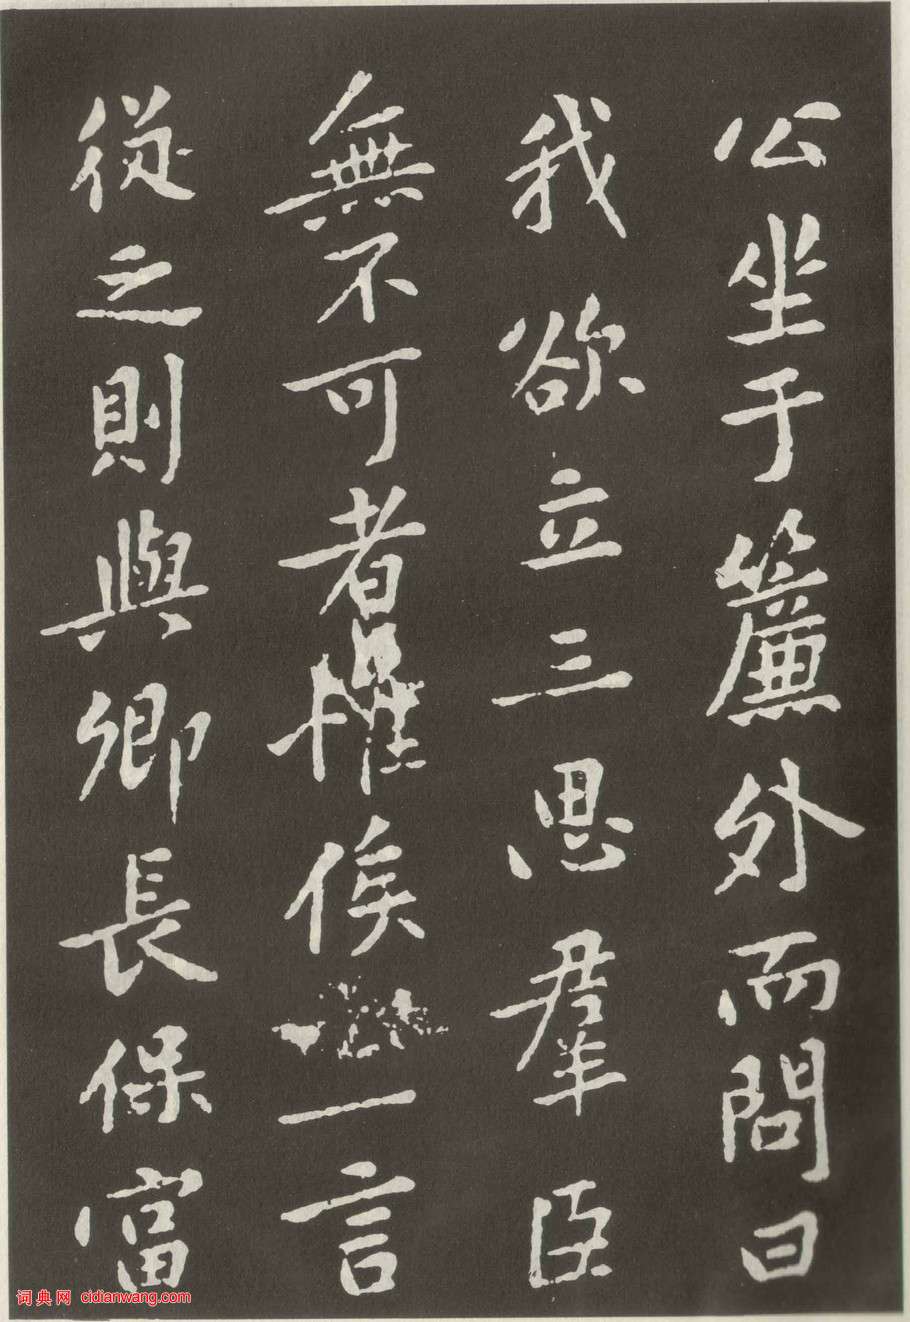 公坐于簾外而問曰
我欲立三思羣臣
無不可者惟俟一言
從之則與卿長保富
词典网 cidianwang.com